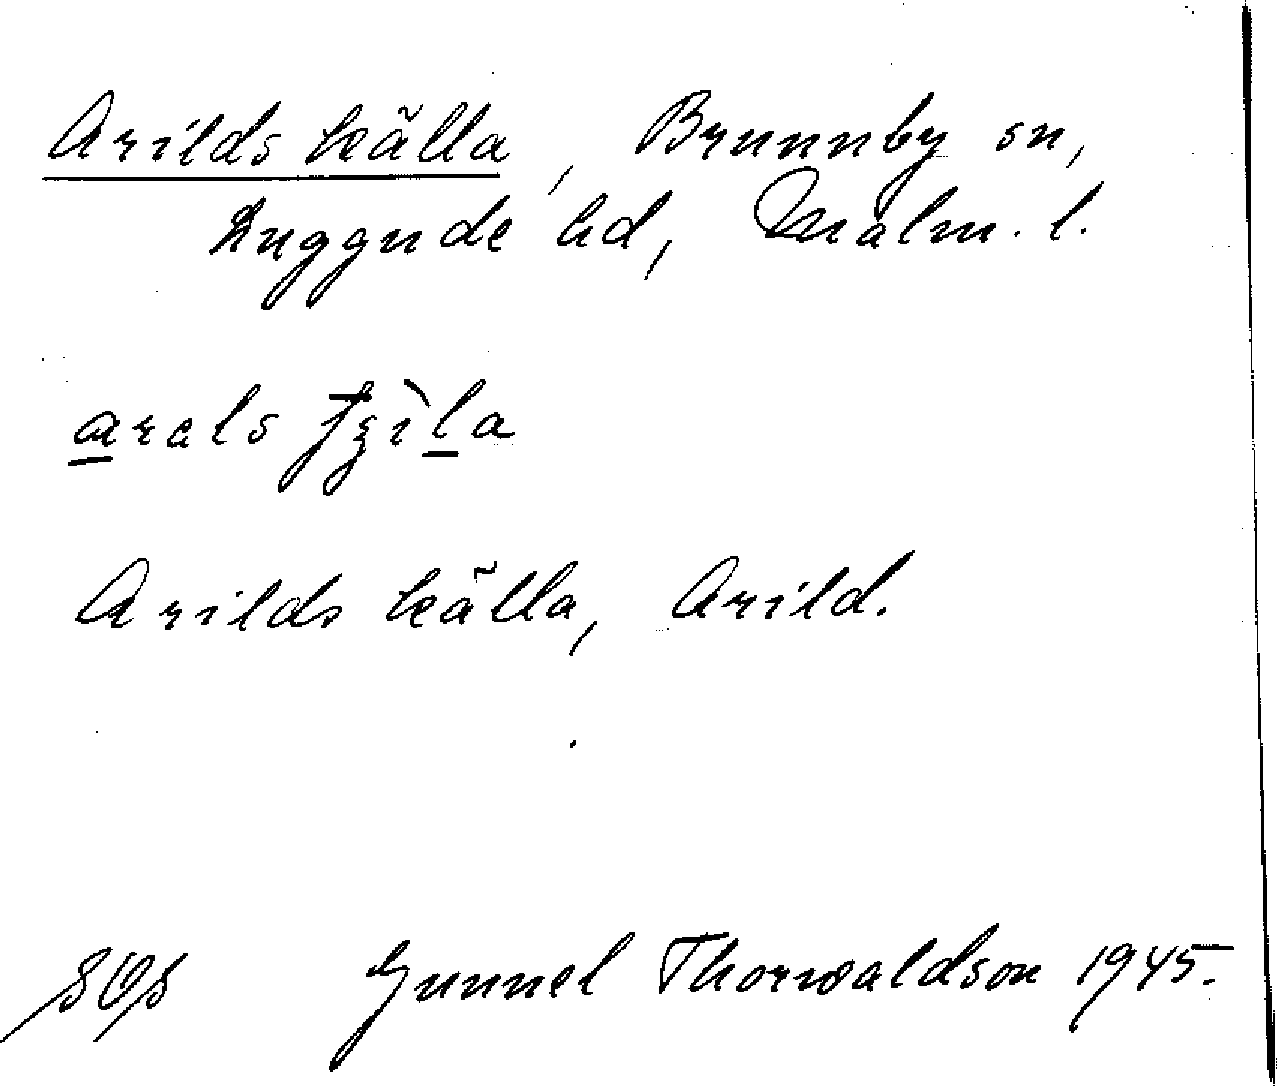 Arilds källa, Brunnby sn,
Luggude hd, Malm. l.
Arilds källa, Arild.
Gunnel Thorwaldson 1945.